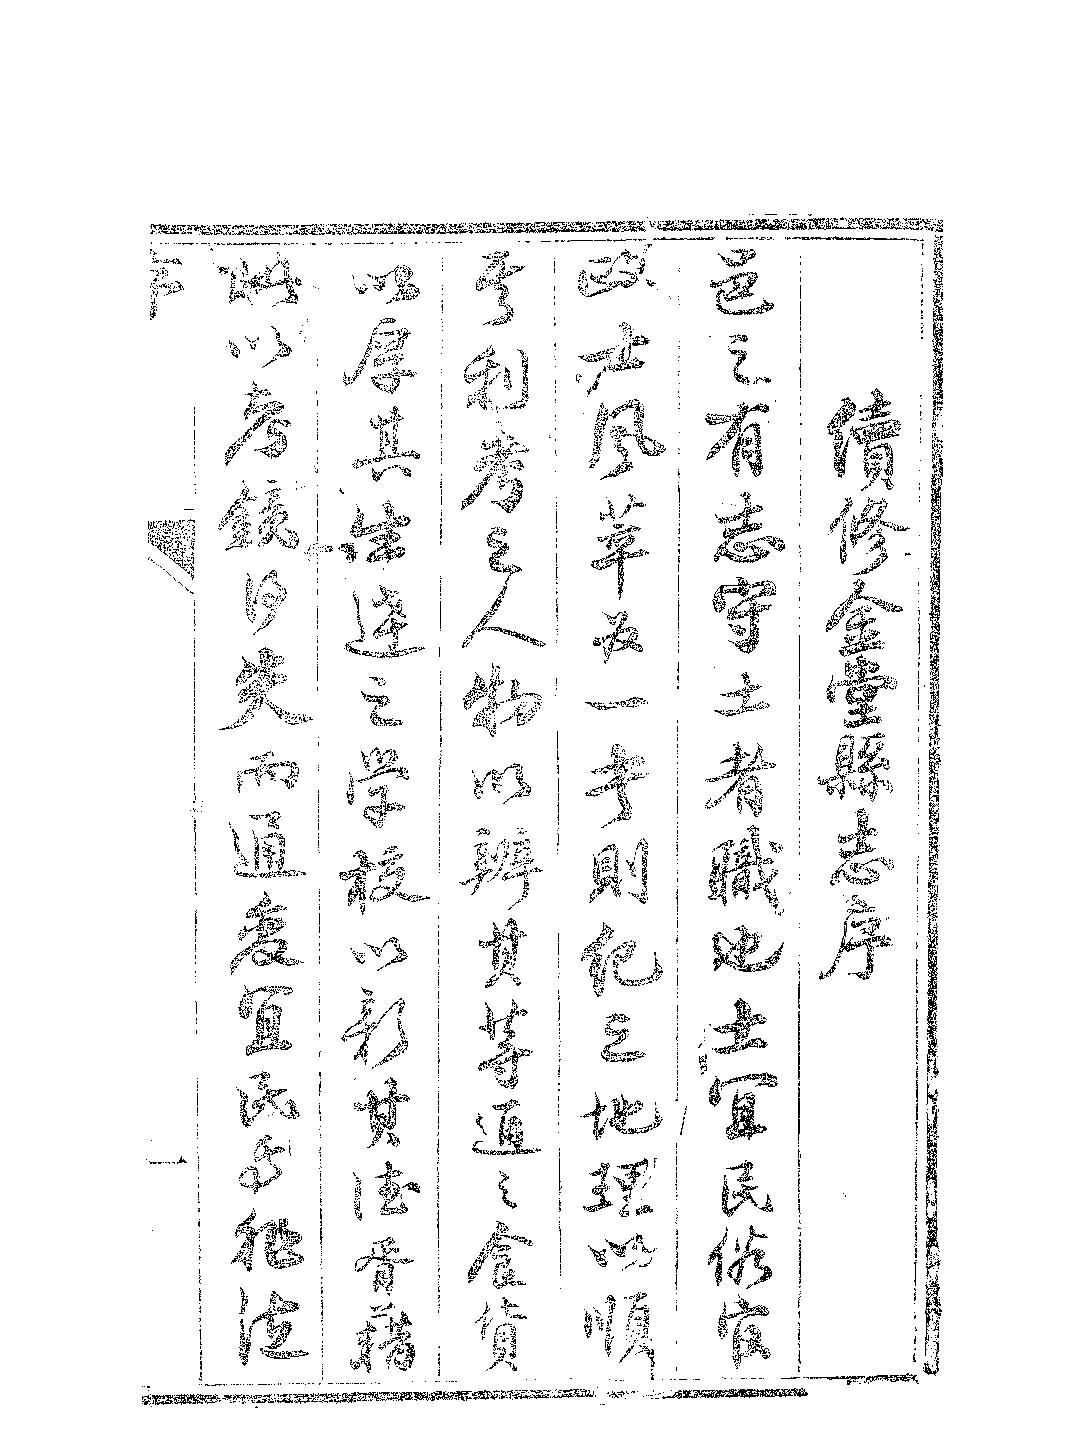 續修金堂縣志序
邑之有志守土者職也土宜民俗官
政士風萃為一書則紀之地理以順
其利考之人物以辨其等通之食貨
以厚其生達之學校以彰其德胥藉
此以考鏡得失而通變宜民與稚法
序
一